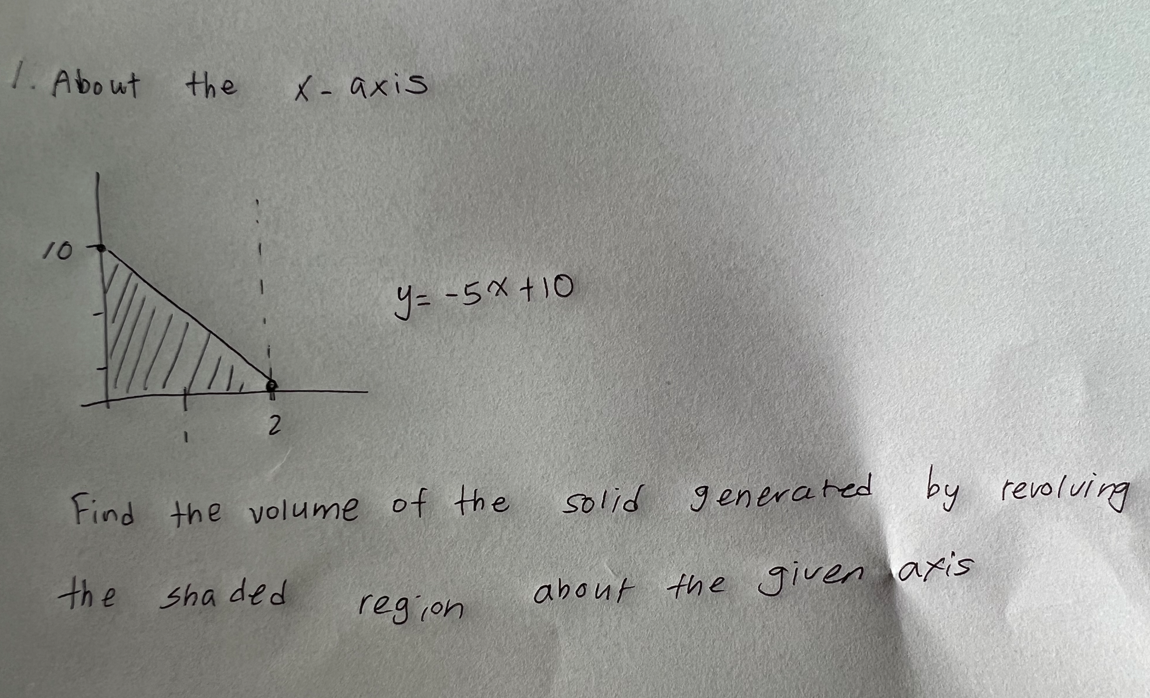 1. About the x-axis
10
y= -5x+10
1
2
Find the volume of the solid generated by revolving
the shaded region about the given axis